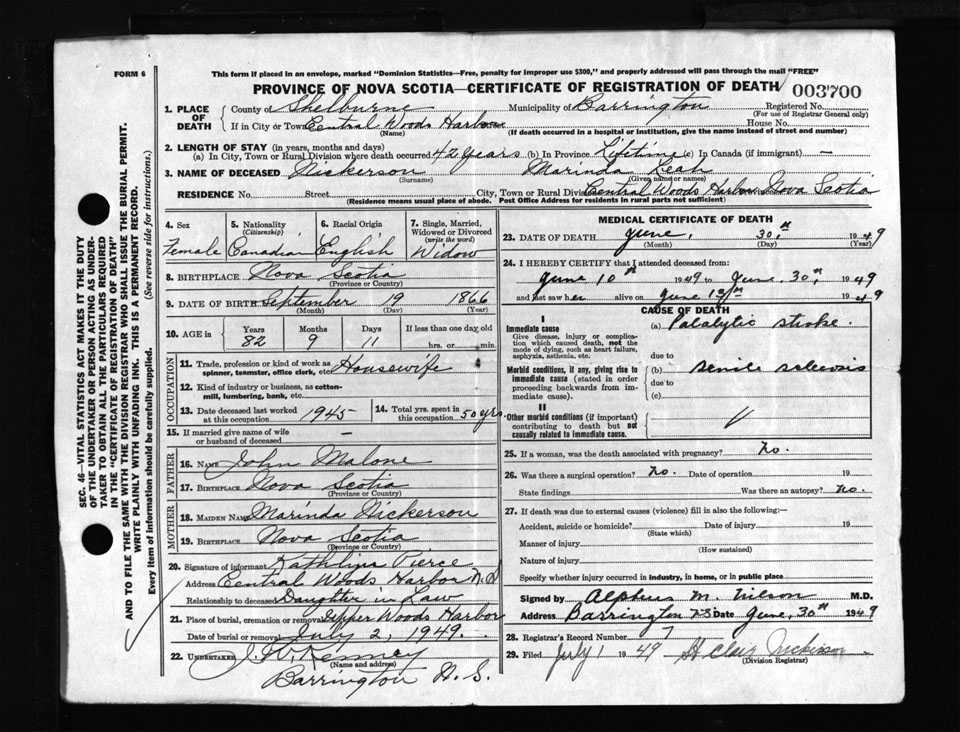 FORM 6
This form if placed in an envelope, marked "Dominion Statistics—Free, penalty for improper use $300," and properly addressed will pass through the mail "FREE"
PROVINCE OF NOVA SCOTIA—CERTIFICATE OF REGISTRATION OF DEATH
003700
1. PLACE OF DEATH County of Shelburne Municipality of Barrington Registered No.
(For use of Registrar General only)
If in City or Town Central Woods Harbor House No.
(Name) (If death occurred in a hospital or institution, give the name instead of street and number)
2. LENGTH OF STAY (in years, months and days)
(a) In City, Town or Rural Division where death occurred 42 years (b) In Province Lifetime (c) In Canada (if immigrant) —
3. NAME OF DECEASED Nickerson Marinda
(Surname) (Given name or names)
RESIDENCE No. Street City, Town or Rural Division Central Woods Harbor Nova Scotia
(Residence means usual place of abode. Post Office Address for residents in rural parts not sufficient)
4. Sex 5. Nationality 6. Racial Origin 7. Single, Married,
(Citizenship) Widowed or Divorced
(write the word)
Female Canadian English Widow
8. BIRTHPLACE Nova Scotia
(Province or Country)
9. DATE OF BIRTH September 19 1866
(Month) (Day) (Year)
10. AGE in Years Months Days If less than one day old
82 9 11 hrs. or min.
OCCUPATION
11. Trade, profession or kind of work as Housewife
spinner, teamster, office clerk, etc.
12. Kind of industry or business, as cotton-
mill, lumbering, bank, etc.
13. Date deceased last worked at this occupation 1945 14. Total yrs. spent in this occupation 50 yrs
15. If married give name of wife
or husband of deceased —
FATHER
16. NAME John Malone
17. BIRTHPLACE Nova Scotia
(Province or Country)
MOTHER
18. MAIDEN NAME Marinda Nickerson
19. BIRTHPLACE Nova Scotia
(Province or Country)
20. Signature of informant Kathlina Pierce
Address Central Woods Harbor N.S
Relationship to deceased Daughter in Law
21. Place of burial, cremation or removal Upper Woods Harbor
Date of burial or removal July 2, 1949.
22. UNDERTAKER Kenney
(Name and address)
Barrington N.S.
MEDICAL CERTIFICATE OF DEATH
23. DATE OF DEATH June, 30th 1949
(Month) (Day) (Year)
24. I HEREBY CERTIFY that I attended deceased from:
June 10th 1949 to June 30th, 1949
and last saw her alive on June 1949
CAUSE OF DEATH
I
Immediate cause (a) Palalytic stroke.
Give disease, injury or complica-
tion which caused death, not the
mode of dying, such as heart failure,
asphyxia, asthenia, etc. due to
Morbid conditions, if any, giving rise to (b) senile
immediate cause (stated in order due to
proceeding backwards from im-
mediate cause). (c)
II
Other morbid conditions (if important)
contributing to death but not
causally related to immediate cause.
25. If a woman, was the death associated with pregnancy? no.
26. Was there a surgical operation? no. Date of operation 19
State findings Was there an autopsy? no.
27. If death was due to external causes (violence) fill in also the following:—
Accident, suicide or homicide? Date of injury 19
(State which)
Manner of injury
(How sustained)
Nature of injury
Specify whether injury occurred in industry, in home, or in public place
Signed by Alpheus M. Wilson M.D.
Address Barrington N.S. Date June, 30th 1949
28. Registrar's Record Number 7
29. Filed July 1 1949 St Clair Nickerson
(Division Registrar)
SEC. 46—VITAL STATISTICS ACT MAKES IT THE DUTY
OF THE UNDERTAKER OR PERSON ACTING AS UNDER-
TAKER TO OBTAIN ALL THE PARTICULARS REQUIRED
IN THE "CERTIFICATE OF REGISTRATION OF DEATH"
AND TO FILE THE SAME WITH THE DIVISION REGISTRAR WHO SHALL ISSUE THE BURIAL PERMIT.
WRITE PLAINLY WITH UNFADING INK. THIS IS A PERMANENT RECORD.
Every item of information should be carefully supplied. (See reverse side for instructions.)